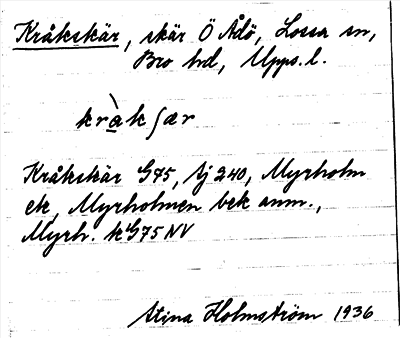 Kråkskär, skär Ö Ådö, Lossa sn,
Bro hd, Upps. l.
kràkʃær
Kråkskär G75, Aj 240, Myrholm
ek, Myrholmen bek anm.,
Myrh. k G75 NV
Stina Holmström 1936